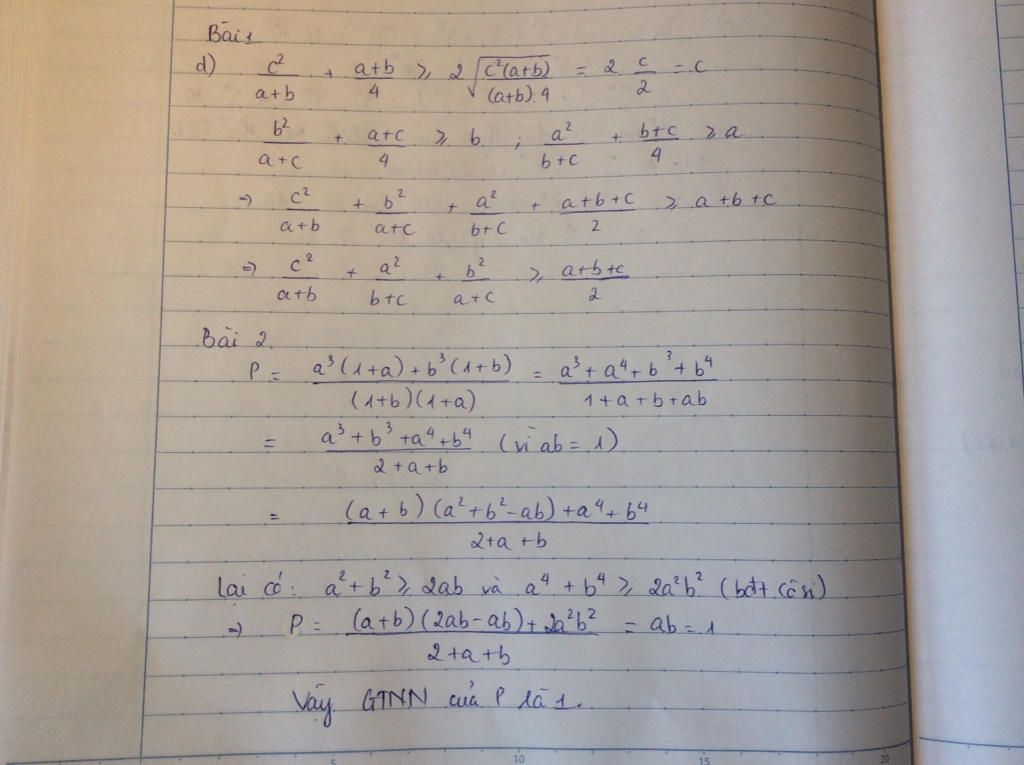 Bài 1
d) c²/(a+b) + (a+b)/4 ⩾ 2√(c²(a+b)/((a+b).4)) = 2 c/2 = c
b²/(a+c) + (a+c)/4 ⩾ b ; a²/(b+c) + (b+c)/4 ⩾ a
⇒ c²/(a+b) + b²/(a+c) + a²/(b+c) + (a+b+c)/2 ⩾ a+b+c
⇒ c²/(a+b) + a²/(b+c) + b²/(a+c) ⩾ (a+b+c)/2
Bài 2.
P = (a³(1+a)+b³(1+b))/((1+b)(1+a)) = (a³+a⁴+b³+b⁴)/(1+a+b+ab)
= (a³+b³+a⁴+b⁴)/(2+a+b) (vì ab=1)
= ((a+b)(a²+b²-ab)+a⁴+b⁴)/(2+a+b)
Lại có: a²+b² ⩾ 2ab và a⁴+b⁴ ⩾ 2a²b² (bđt cô si)
⇒ P = ((a+b)(2ab-ab)+2a²b²)/(2+a+b) = ab = 1
Vậy GTNN của P là 1.
5 10 15 20